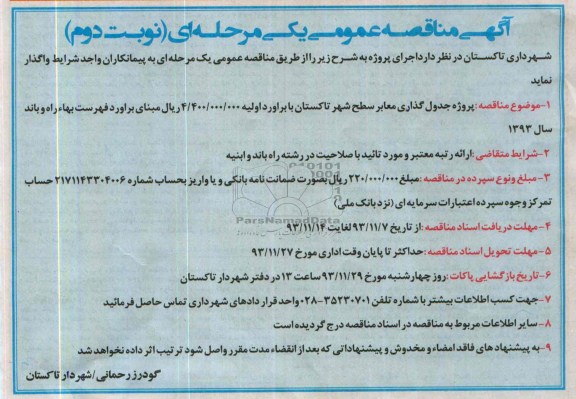 آگهی مناقصه عمومی یکی مرحله‌ای (نوبت دوم)
شهرداری تاکستان در نظر دارد اجرای پروژه به شرح زیر را از طریق مناقصه عمومی یک مرحله ای به پیمانکاران واجد شرایط واگذار
نماید
۱-موضوع مناقصه: پروژه جدول گذاری معابر سطح شهر تاکستان با براورد اولیه ۴/۴۰۰/۰۰۰/۰۰۰ ریال مبنای براورد فهرست بهاء راه و باند
سال ۱۳۹۳
۲-شرایط متقاضی: ارائه رتبه معتبر و مورد تائید با صلاحیت در رشته راه باند و ابنیه
۳-مبلغ و نوع سپرده در مناقصه: مبلغ ۲۲۰/۰۰۰/۰۰۰ ریال بصورت ضمانت نامه بانکی و یا واریز بحساب شماره ۲۱۷۱۱۴۳۳۰۴۰۰۶ حساب
تمرکز وجوه سپرده اعتبارات سرمایه ای (نزد بانک ملی)
۴-مهلت دریافت اسناد مناقصه: از تاریخ ۹۳/۱۱/۷ لغایت ۹۳/۱۱/۱۴
۵-مهلت تحویل اسناد مناقصه: حداکثر تا پایان وقت اداری مورخ ۹۳/۱۱/۲۷
۶-تاریخ بازگشایی پاکات: روز چهارشنبه مورخ ۹۳/۱۱/۲۹ ساعت ۱۳ در دفتر شهردار تاکستان
۷-جهت کسب اطلاعات بیشتر با شماره تلفن ۳۵۲۳۰۷۰۱-۰۲۸ واحد قرار دادهای شهرداری تماس حاصل فرمائید
۸-سایر اطلاعات مربوط به مناقصه در اسناد مناقصه درج گردیده است
۹-به پیشنهادهای فاقد امضاء و مخدوش و پیشنهاداتی که بعد از انقضاء مدت مقرر واصل شود ترتیب اثر داده نخواهد شد
گودرز رحمانی/شهردار تاکستان
ParsNamadData